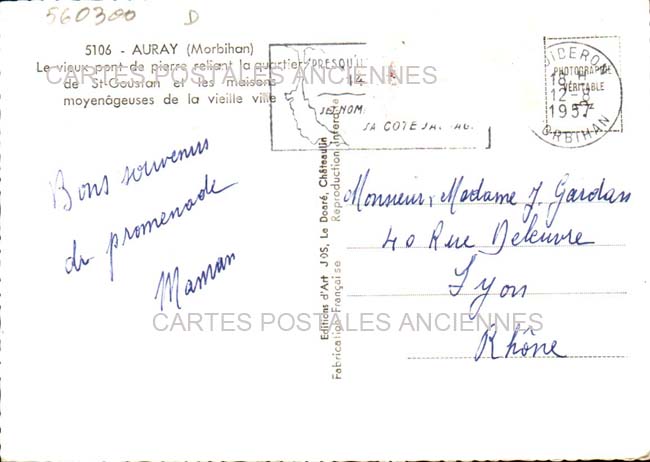 560300 D
5106 - AURAY (Morbihan)
Le vieux pont de pierre reliant la quartier
de St-Goustan et les maisons
moyenâgeuses de la vieille ville
PRESQU'
14
SA COTE SAUVAGE
QUIBERON
18 H
12-8
1957
MORBIHAN
PHOTOGRAPHIE
VÉRITABLE
CARTES POSTALES ANCIENNES
Bons souvenirs
de promenade
Maman
Editions d'Art JOS, Le Doaré, Châteaulin
Fabrication Française Reproduction Interdite
Monsieur, Madame J. Gardan
40 Rue Deleuvre
Lyon
Rhône
CARTES POSTALES ANCIENNES